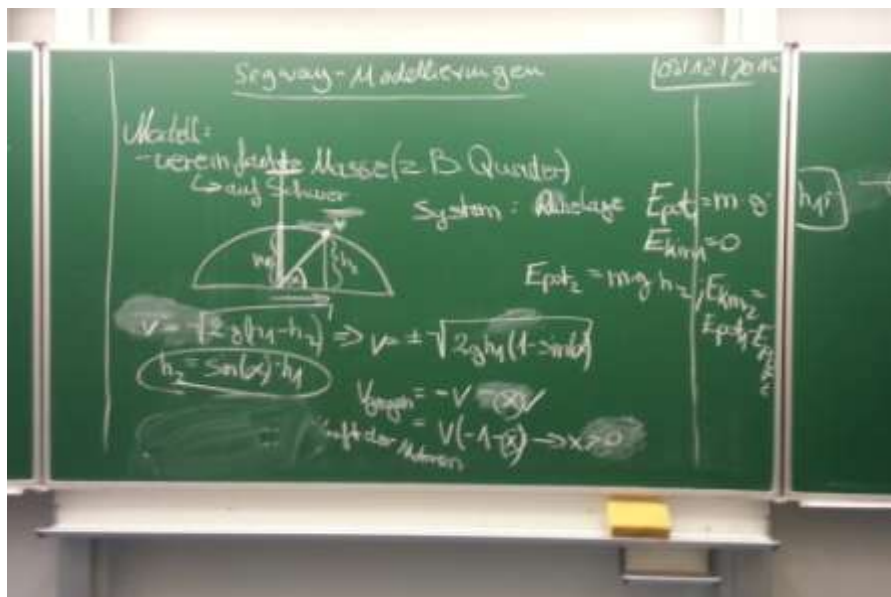 Segway-Modellierungen
Modell:
-vereinfachte Masse (z B Quader)
↳ auf Schwer
System: Ruhelage Epot1 = m g
Ekin1 = 0
h1
α
h2
Epot2 = m g h2, Ekin2 =
Epot1 - E
v = √2g(h1-h2) ⇒ v = ± √2gh1(1-sin(α))
h2 = sin(α)·h1
Vgegen = -V -(x)V
= V(-1-(x)) → x>0
der Motoren
h1